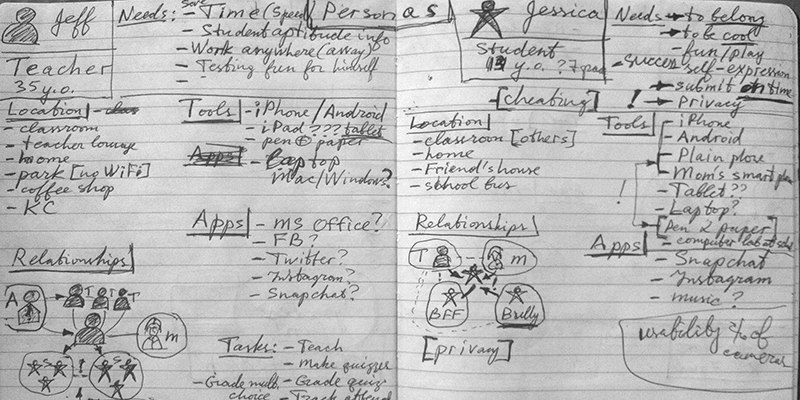 Jeff
Teacher
35 y.o.
Needs:
save
- Time (Speed
- Student aptitude info
- Work anywhere (away)
- Testing fun for himself
-
Personas
Location
- classroom
- teacher lounge
- home
- park [no WiFi]
- coffee shop
- KC
Tools
- iPhone/Android
- iPad ??? tablet
- pen & paper
Apps
- Laptop
Mac/Windows?
Apps
- MS Office?
- FB?
- Twitter?
- Instagram?
- Snapchat?
Relationships
A
T T T
m
S S
!
Tasks:
- Teach
- Make quizzes
- Grade quiz
- Grade mult.
choice
Jessica
Student
13 y.o.
Needs
→ to belong
→ to be cool
- fun/play
- self-expression
→ submit on time
→ privacy
!
- [cheating]
Location
- classroom [others]
- home
- Friend's house
- school bus
Tools
- iPhone
- Android
- Plain phone
- Mom's smart
- Tablet??
- Laptop?
- Pen & paper
- computer lab at
!
Apps
- Snapchat
- Instagram
- music?
Relationships
T
m
BFF
Bully
[privacy]
usability of
cameras